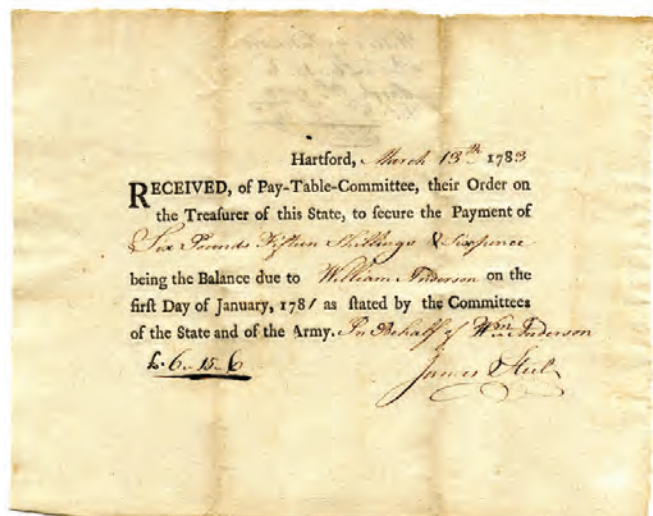 Hartford, March 13th 1783
RECEIVED, of Pay-Table-Committee, their Order on
the Treaſurer of this State, to ſecure the Payment of
Six Pounds Fifteen Shillings & Sixpence
being the Balance due to William Anderson on the
firſt Day of January, 1781 as ſtated by the Committees
of the State and of the Army. In Behalf of Wm. Anderson
£. 6 - 15 - 6
James Steel